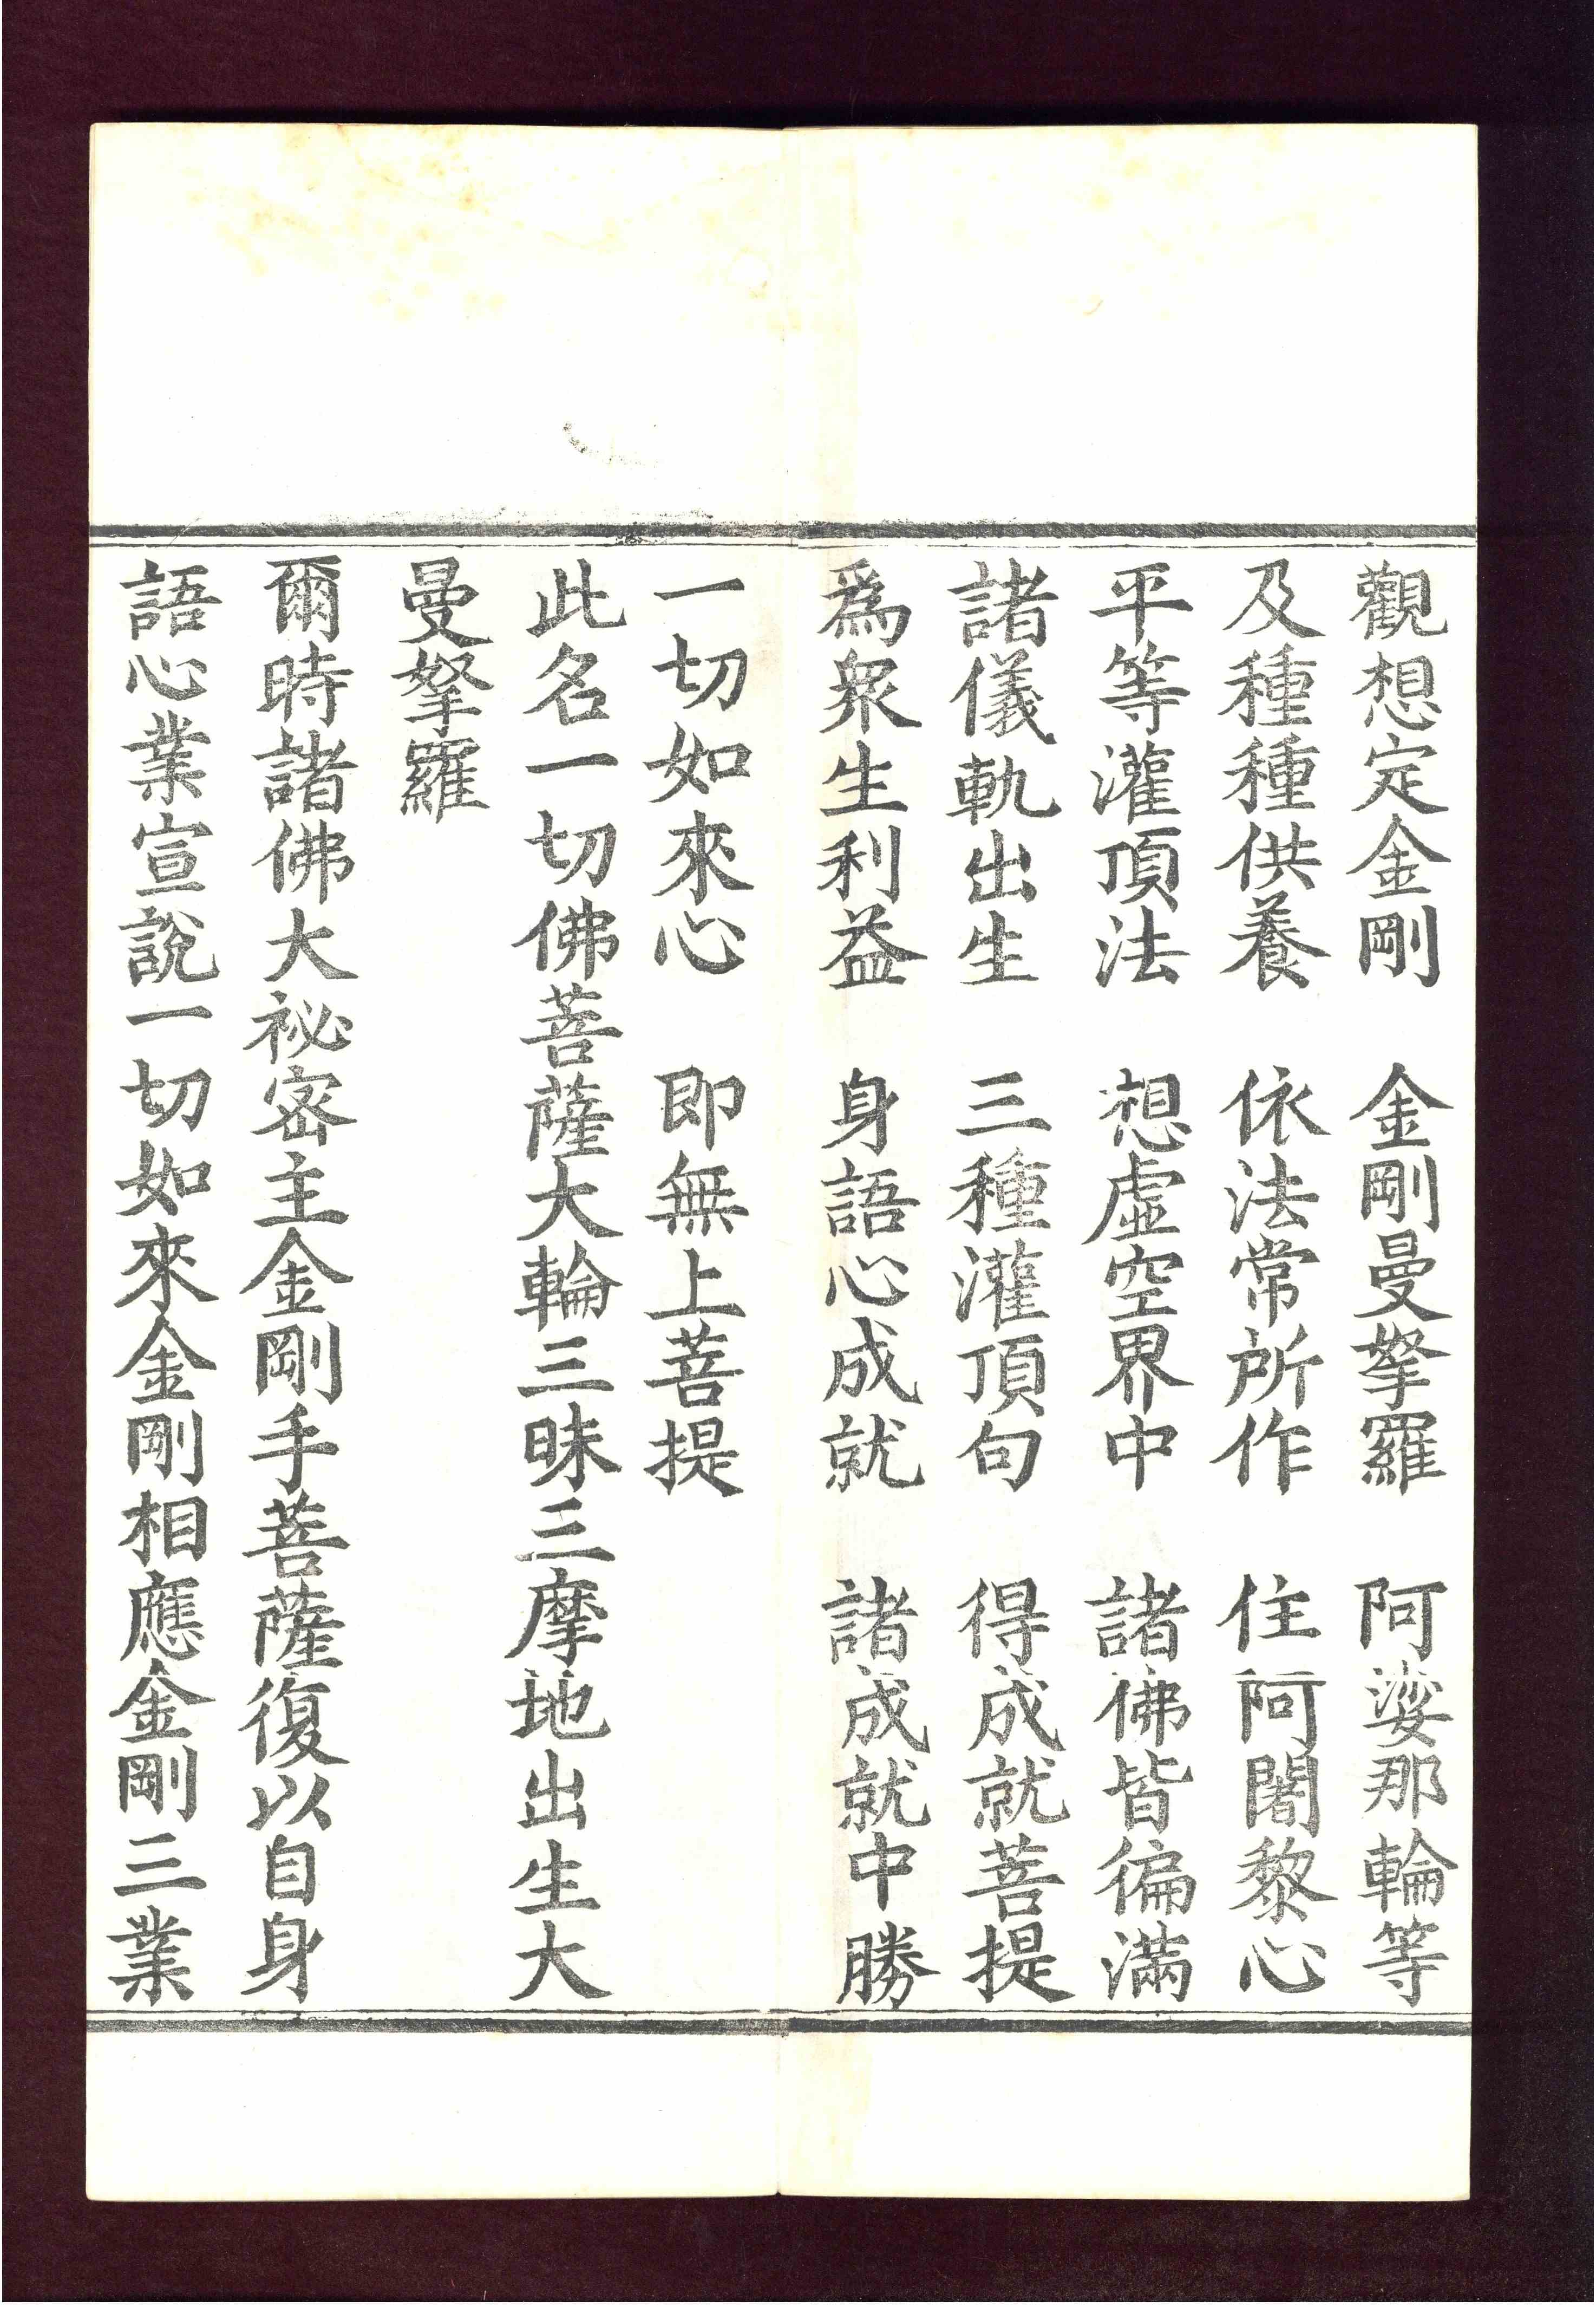 觀想定金剛　金剛曼拏羅　阿娑那輪等
及種種供養　依法常所作　住阿闍黎心
平等灌頂法　想虛空界中　諸佛皆徧滿
諸儀軌出生　三種灌頂句　得成就菩提
爲衆生利益　身語心成就　諸成就中勝
一切如來心　即無上菩提
此名一切佛菩薩大輪三昧三摩地出生大
曼拏羅
爾時諸佛大祕密主金剛手菩薩復以自身
語心業宣說一切如來金剛相應金剛三業